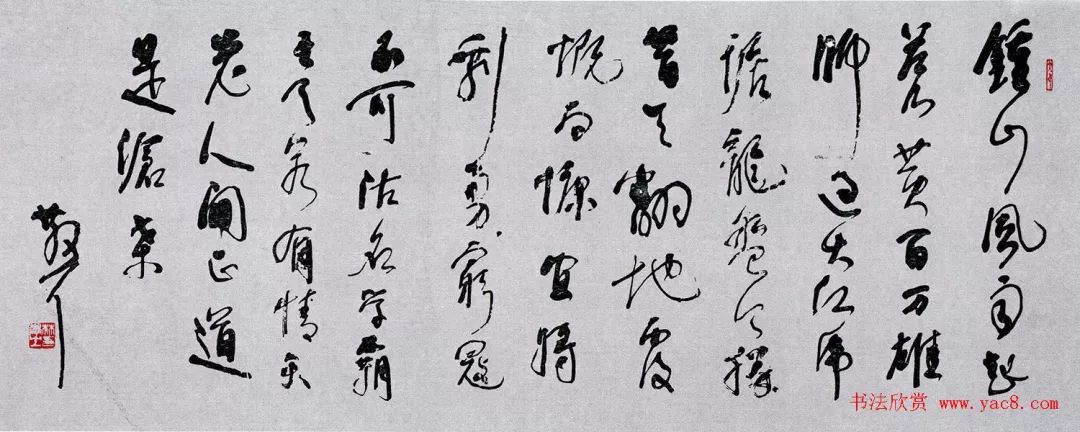 鍾山風雨起
蒼黄百万雄
師過大江虎
踞龍盤今勝
昔天翻地覆
慨而慷宜將
剩勇窮寇
不可沽名学霸
王天若有情天
老人間正道
是滄桑
散耳
书法欣赏 www.yac8.com